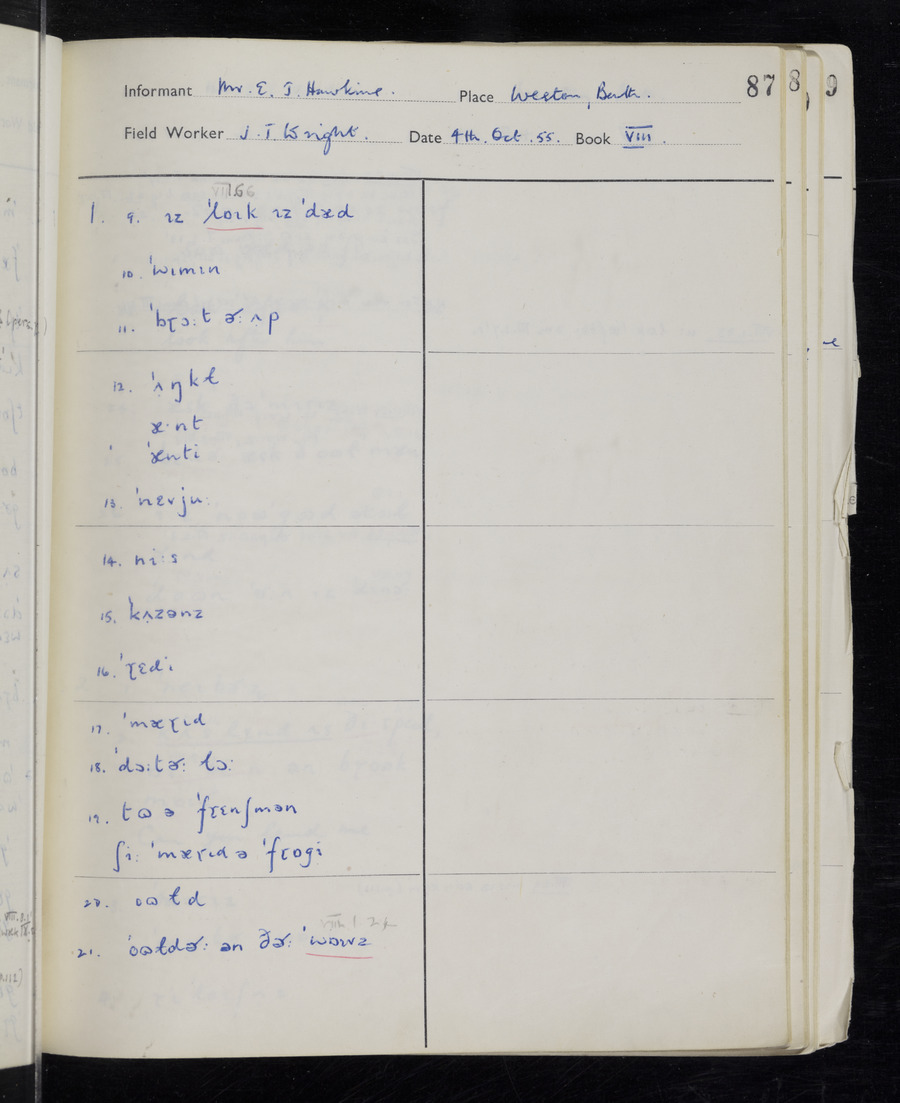 Informant Mr. E. J. Hawkins. Place Weston, Bath. 87 8 9
Field Worker J. T. Wright. Date 4th. Oct. 55. Book VIII.
1. 9. ɪz ˈlɒɪk ɪz ˈdæd
10. ˈwɪmɪn
11. ˈbɽɔːt ɚː ʌp
12. ˈʌŋkɫ
æˑnt
ˈænti
13. ˈnɛvjuː
14. niːs
15. ˈkʌzənz
16. ˈɽɛdi
17. ˈmæɽɪd
18. ˈdɔːtɚː lɔː
19. tɷ ə ˈfɽɛnʃmən
ʃiː ˈmæɽɪd ə ˈfɽɒgi
20. oɷɫd
VIII.1.21
21. ˈoɷɫdɚː ən ðɚː ˈwɒwz